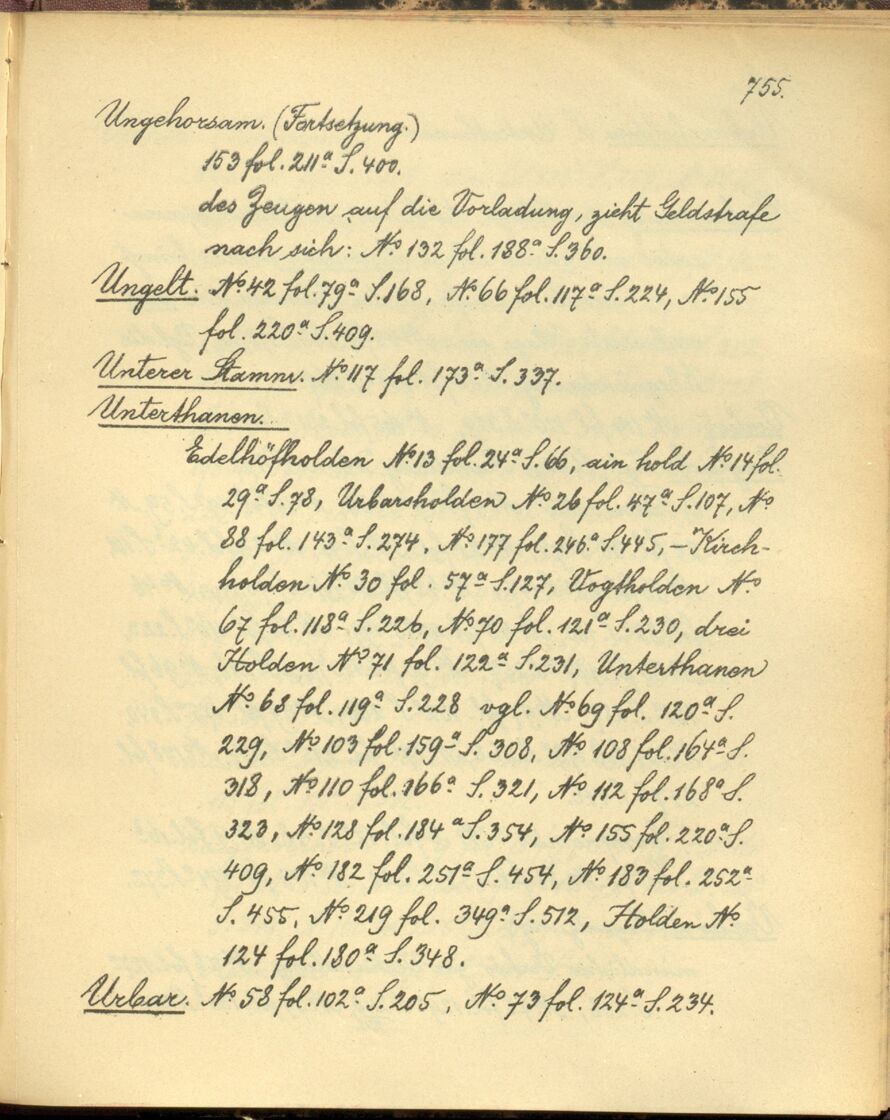 755.
Ungehorsam. (Fortsetzung.)
153 fol. 211ª S. 400.
des Zeugen auf die Vorladung, zieht Geldstrafe
nach sich: Nº 132 fol. 188ª S. 360.
Ungelt. Nº 42 fol. 79ª S. 168, Nº 66 fol. 117ª S. 224, Nº 155
fol. 220ª S. 409.
Unterer Stamm. Nº 117 fol. 173ª S. 337.
Unterthanen.
Edelhöfholden Nº 13 fol. 24ª S. 66, ain hold Nº 14 fol.
29ª S. 78, Urbarsholden Nº 26 fol. 47ª S. 107, Nº
88 fol. 143ª S. 274, Nº 177 fol. 246ª S. 445, – Kirch-
holden Nº 30 fol. 57ª S. 127, Vogtholden Nº
67 fol. 118ª S. 226, Nº 70 fol. 121ª S. 230, drei
Holden Nº 71 fol. 122ª S. 231, Unterthanen
Nº 68 fol. 119ª S. 228 vgl. Nº 69 fol. 120ª S.
229, Nº 103 fol. 159ª S. 308, Nº 108 fol. 164ª S.
318, Nº 110 fol. 166ª S. 321, Nº 112 fol. 168ª S.
323, Nº 128 fol. 184ª S. 354, Nº 155 fol. 220ª S.
409, Nº 182 fol. 251ª S. 454, Nº 183 fol. 252ª
S. 455, Nº 219 fol. 349ª S. 512, Holden Nº
124 fol. 180ª S. 348.
Urbar. Nº 58 fol. 102ª S. 205, Nº 73 fol. 124ª S. 234.